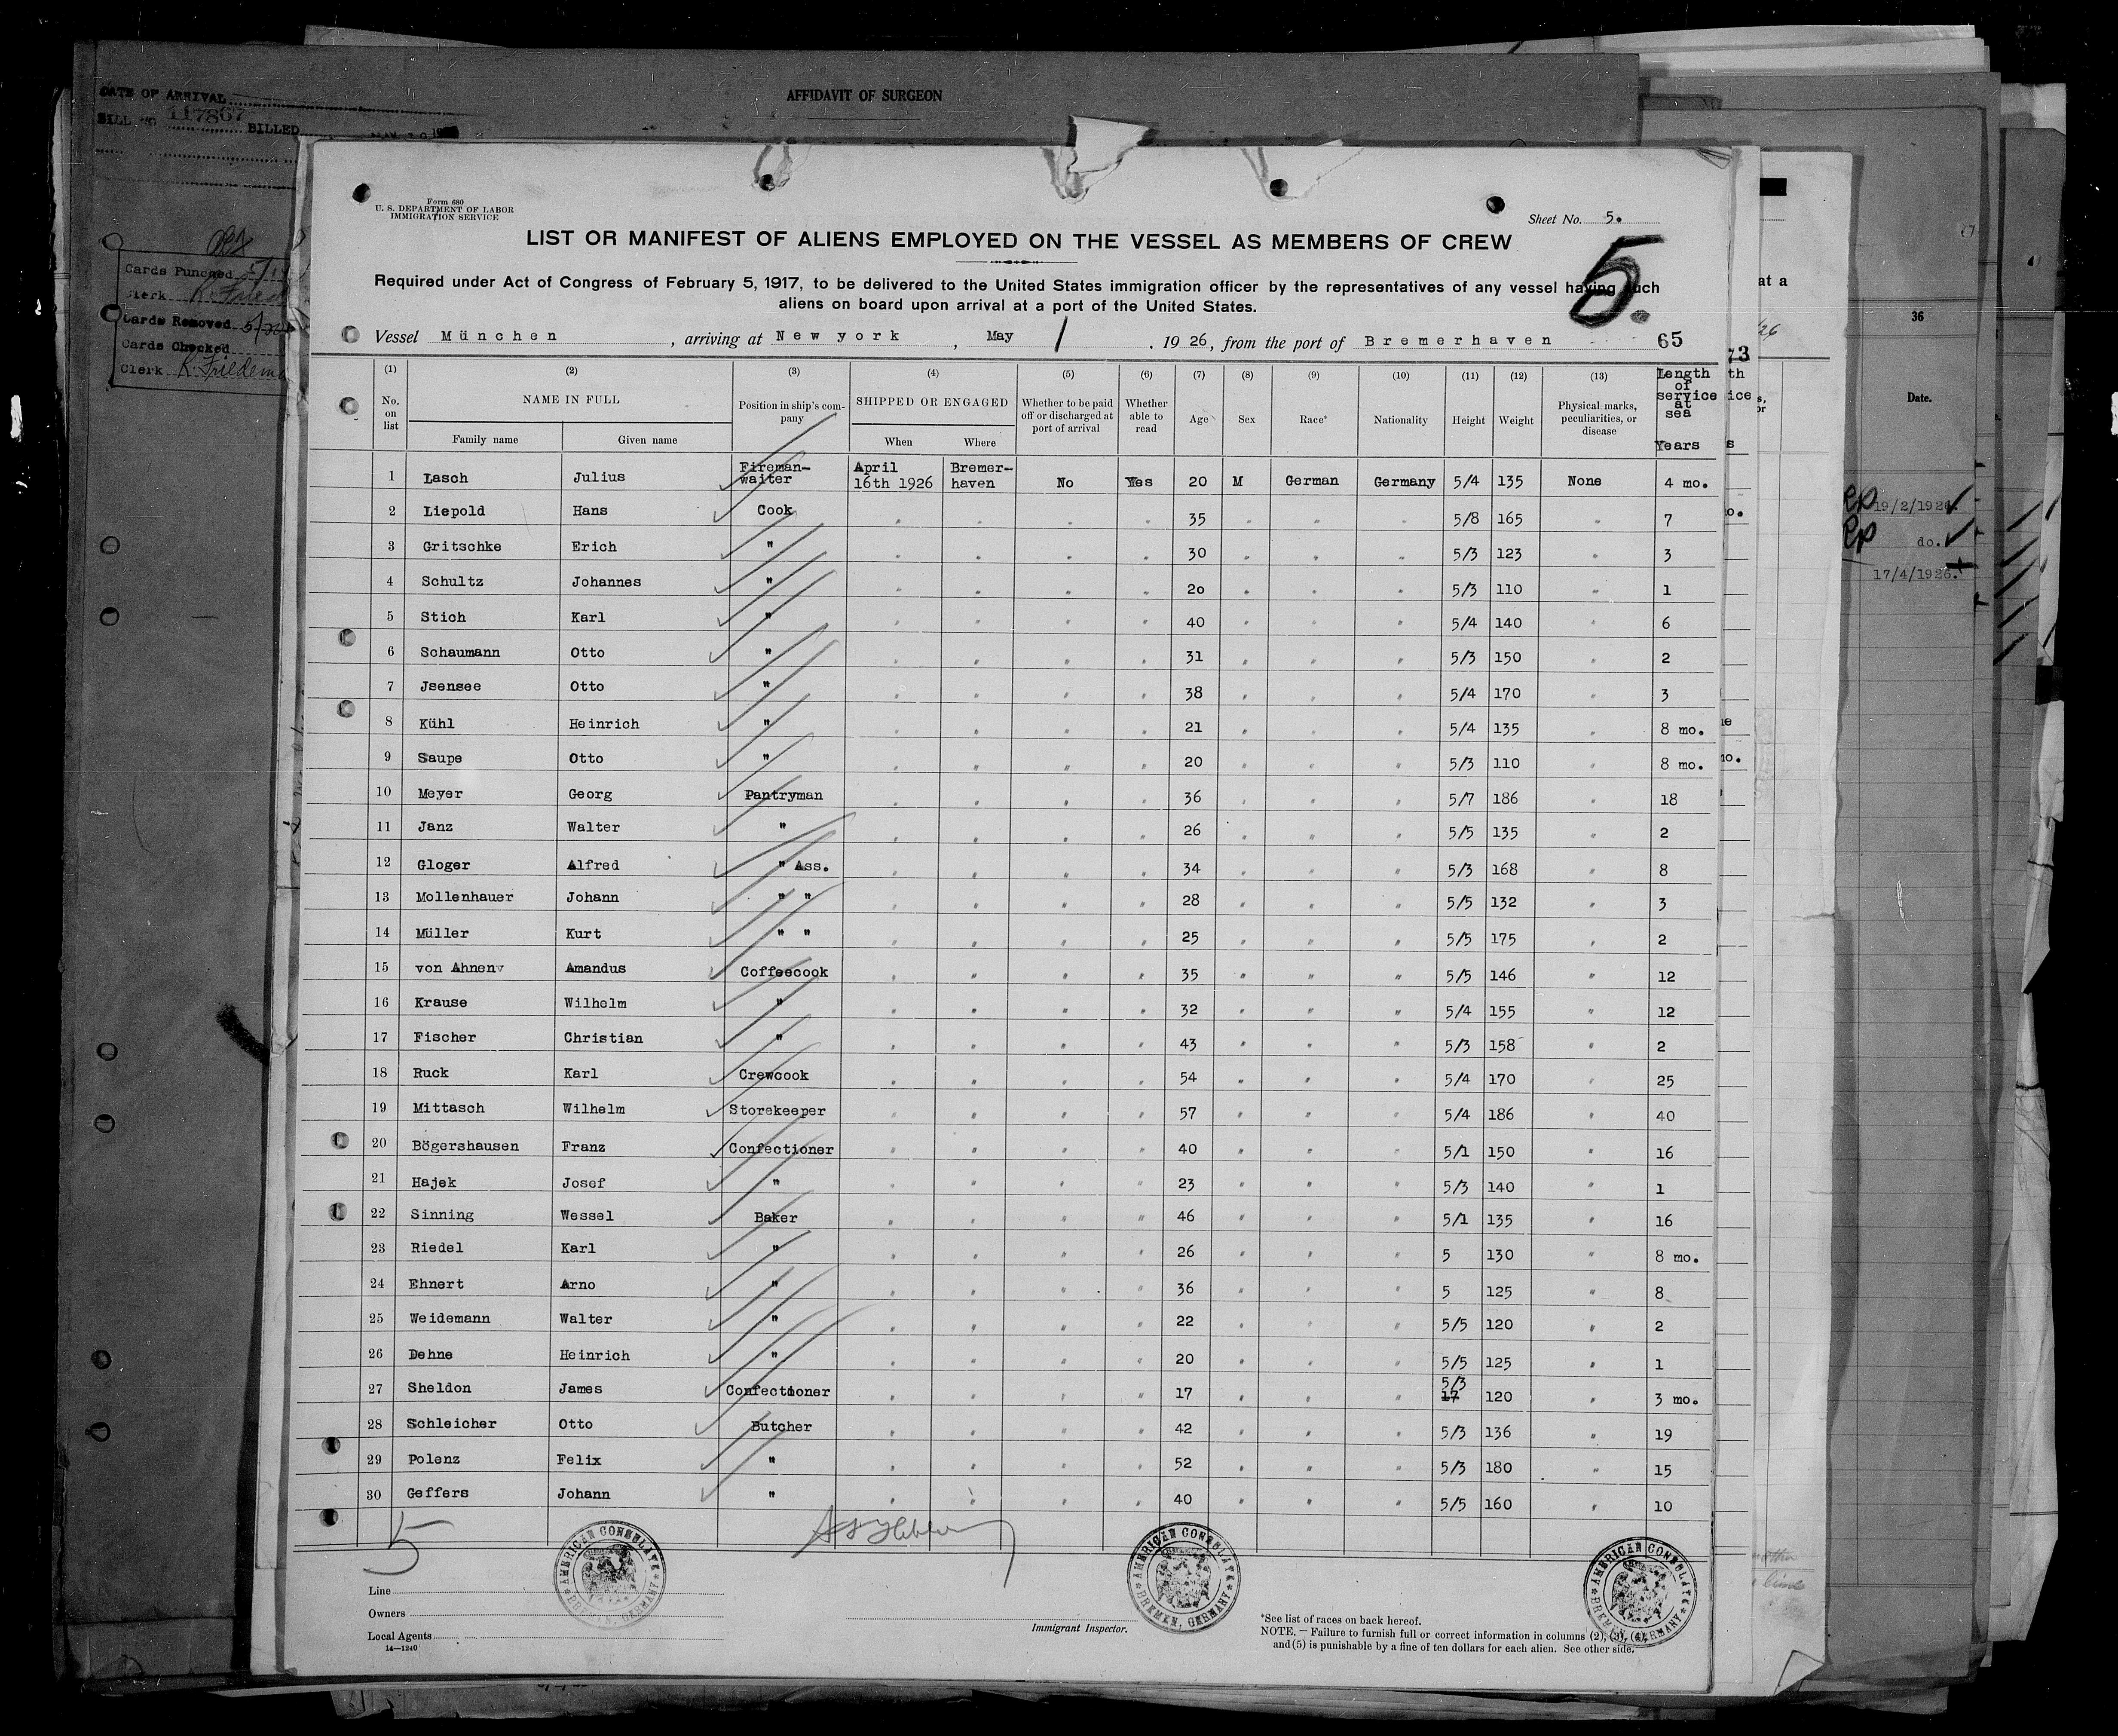 DATE OF ARRIVAL
BILL NO 117867 BILLED
AFFIDAVIT OF SURGEON
Cards Punched
Clerk
Cards Removed
Cards Checked
Clerk K. Friedema
Form 680
U. S. DEPARTMENT OF LABOR
IMMIGRATION SERVICE
Sheet No. 5.
LIST OR MANIFEST OF ALIENS EMPLOYED ON THE VESSEL AS MEMBERS OF CREW
5.
Required under Act of Congress of February 5, 1917, to be delivered to the United States immigration officer by the representatives of any vessel having such
aliens on board upon arrival at a port of the United States.
Vessel München, arriving at New york, May 1, 1926, from the port of Bremerhaven 65
(1) (2) (3) (4) (5) (6) (7) (8) (9) (10) (11) (12) (13)
No. on list NAME IN FULL Family name Given name Position in ship's company SHIPPED OR ENGAGED When Where Whether to be paid off or discharged at port of arrival Whether able to read Age Sex Race* Nationality Height Weight Physical marks, peculiarities, or disease Length of service at sea Years
1 Lasch Julius Fireman-waiter April 16th 1926 Bremer-haven No Yes 20 M German Germany 5/4 135 None 4 mo.
2 Liepold Hans Cook " " " " 35 " " " 5/8 165 " 7
3 Gritschke Erich " " " " " 30 " " " 5/3 123 " 3
4 Schultz Johannes " " " " " 20 " " " 5/3 110 " 1
5 Stich Karl " " " " " 40 " " " 5/4 140 " 6
6 Schaumann Otto " " " " " 31 " " " 5/3 150 " 2
7 Jsensee Otto " " " " " 38 " " " 5/4 170 " 3
8 Kühl Heinrich " " " " " 21 " " " 5/4 135 " 8 mo.
9 Saupe Otto " " " " " 20 " " " 5/3 110 " 8 mo.
10 Meyer Georg Pantryman " " " " 36 " " " 5/7 186 " 18
11 Janz Walter " " " " " 26 " " " 5/5 135 " 2
12 Gloger Alfred " Ass. " " " " 34 " " " 5/3 168 " 8
13 Mollenhauer Johann " " " " " " 28 " " " 5/5 132 " 3
14 Müller Kurt " " " " " " 25 " " " 5/5 175 " 2
15 von Ahnen Amandus Coffeecook " " " " 35 " " " 5/5 146 " 12
16 Krause Wilhelm " " " " " 32 " " " 5/4 155 " 12
17 Fischer Christian " " " " " 43 " " " 5/3 158 " 2
18 Ruck Karl Crewcook " " " " 54 " " " 5/4 170 " 25
19 Mittasch Wilhelm Storekeeper " " " " 57 " " " 5/4 186 " 40
20 Bögershausen Franz Confectioner " " " " 40 " " " 5/1 150 " 16
21 Hajek Josef " " " " " 23 " " " 5/3 140 " 1
22 Sinning Wessel Baker " " " " 46 " " " 5/1 135 " 16
23 Riedel Karl " " " " " 26 " " " 5 130 " 8 mo.
24 Ehnert Arno " " " " " 36 " " " 5 125 " 8
25 Weidemann Walter " " " " " 22 " " " 5/5 120 " 2
26 Dehne Heinrich " " " " " 20 " " " 5/5 125 " 1
27 Sheldon James Confectioner " " " " 17 " " " 5/3 17 120 " 3 mo.
28 Schleicher Otto Butcher " " " " 42 " " " 5/3 136 " 19
29 Polenz Felix " " " " " 52 " " " 5/3 180 " 15
30 Geffers Johann " " " " " 40 " " " 5/5 160 " 10
5
AMERICAN CONSULATE BREMEN, GERMANY
AMERICAN CONSULATE BREMEN, GERMANY
AMERICAN CONSULATE BREMEN, GERMANY
Line
Owners
Local Agents
14—1240
Immigrant Inspector.
*See list of races on back hereof.
NOTE.—Failure to furnish full or correct information in columns (2), (3), (4),
and (5) is punishable by a fine of ten dollars for each alien. See other side.
at a
73
36
Date.
19/2/1926.
do.
17/4/1926.